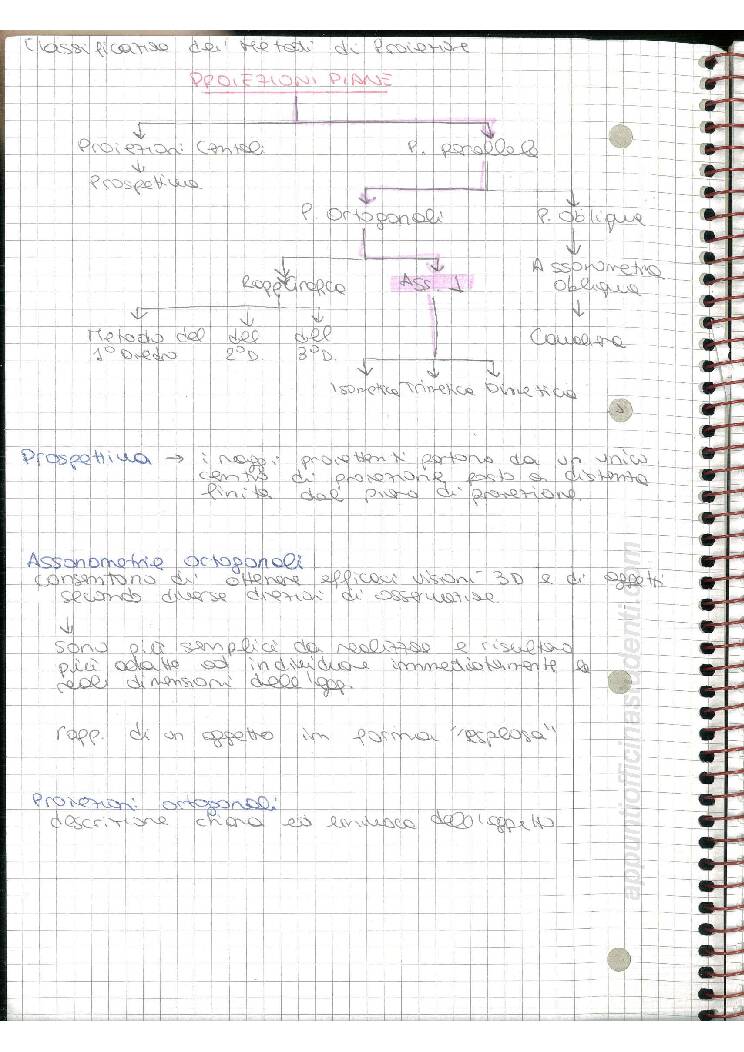 Classificazione dei Metodi di Proiezione
PROIEZIONI PIANE
Proiezioni Centrali
P. parallele
Prospettiva
P. Ortogonali
P. Oblique
Rapp Grafica
Ass. ⊥
Assonometria
Oblique
Metodo del
1° Diedro
del
2° D.
del
3° D.
Cavaliera
Isometrica Trimetrica Dimetrica
Prospettiva → i raggi proiettanti partono da un unico
centro di proiezione posto a distanza
finita dal piano di proiezione.
Assonometrie ortogonali
consentono di ottenere efficaci visioni 3D e di oggetti
secondo diverse direzioni di osservazione.
↓
sono più semplici da realizzare e risultano
più adatte ad individuare immediatamente le
reali dimensioni dell'ogg.
rapp. di un oggetto in forma "esplosa"
Proiezioni ortogonali
descrizione chiara ed univoca dell'oggetto
appuntiofficinastudenti.com